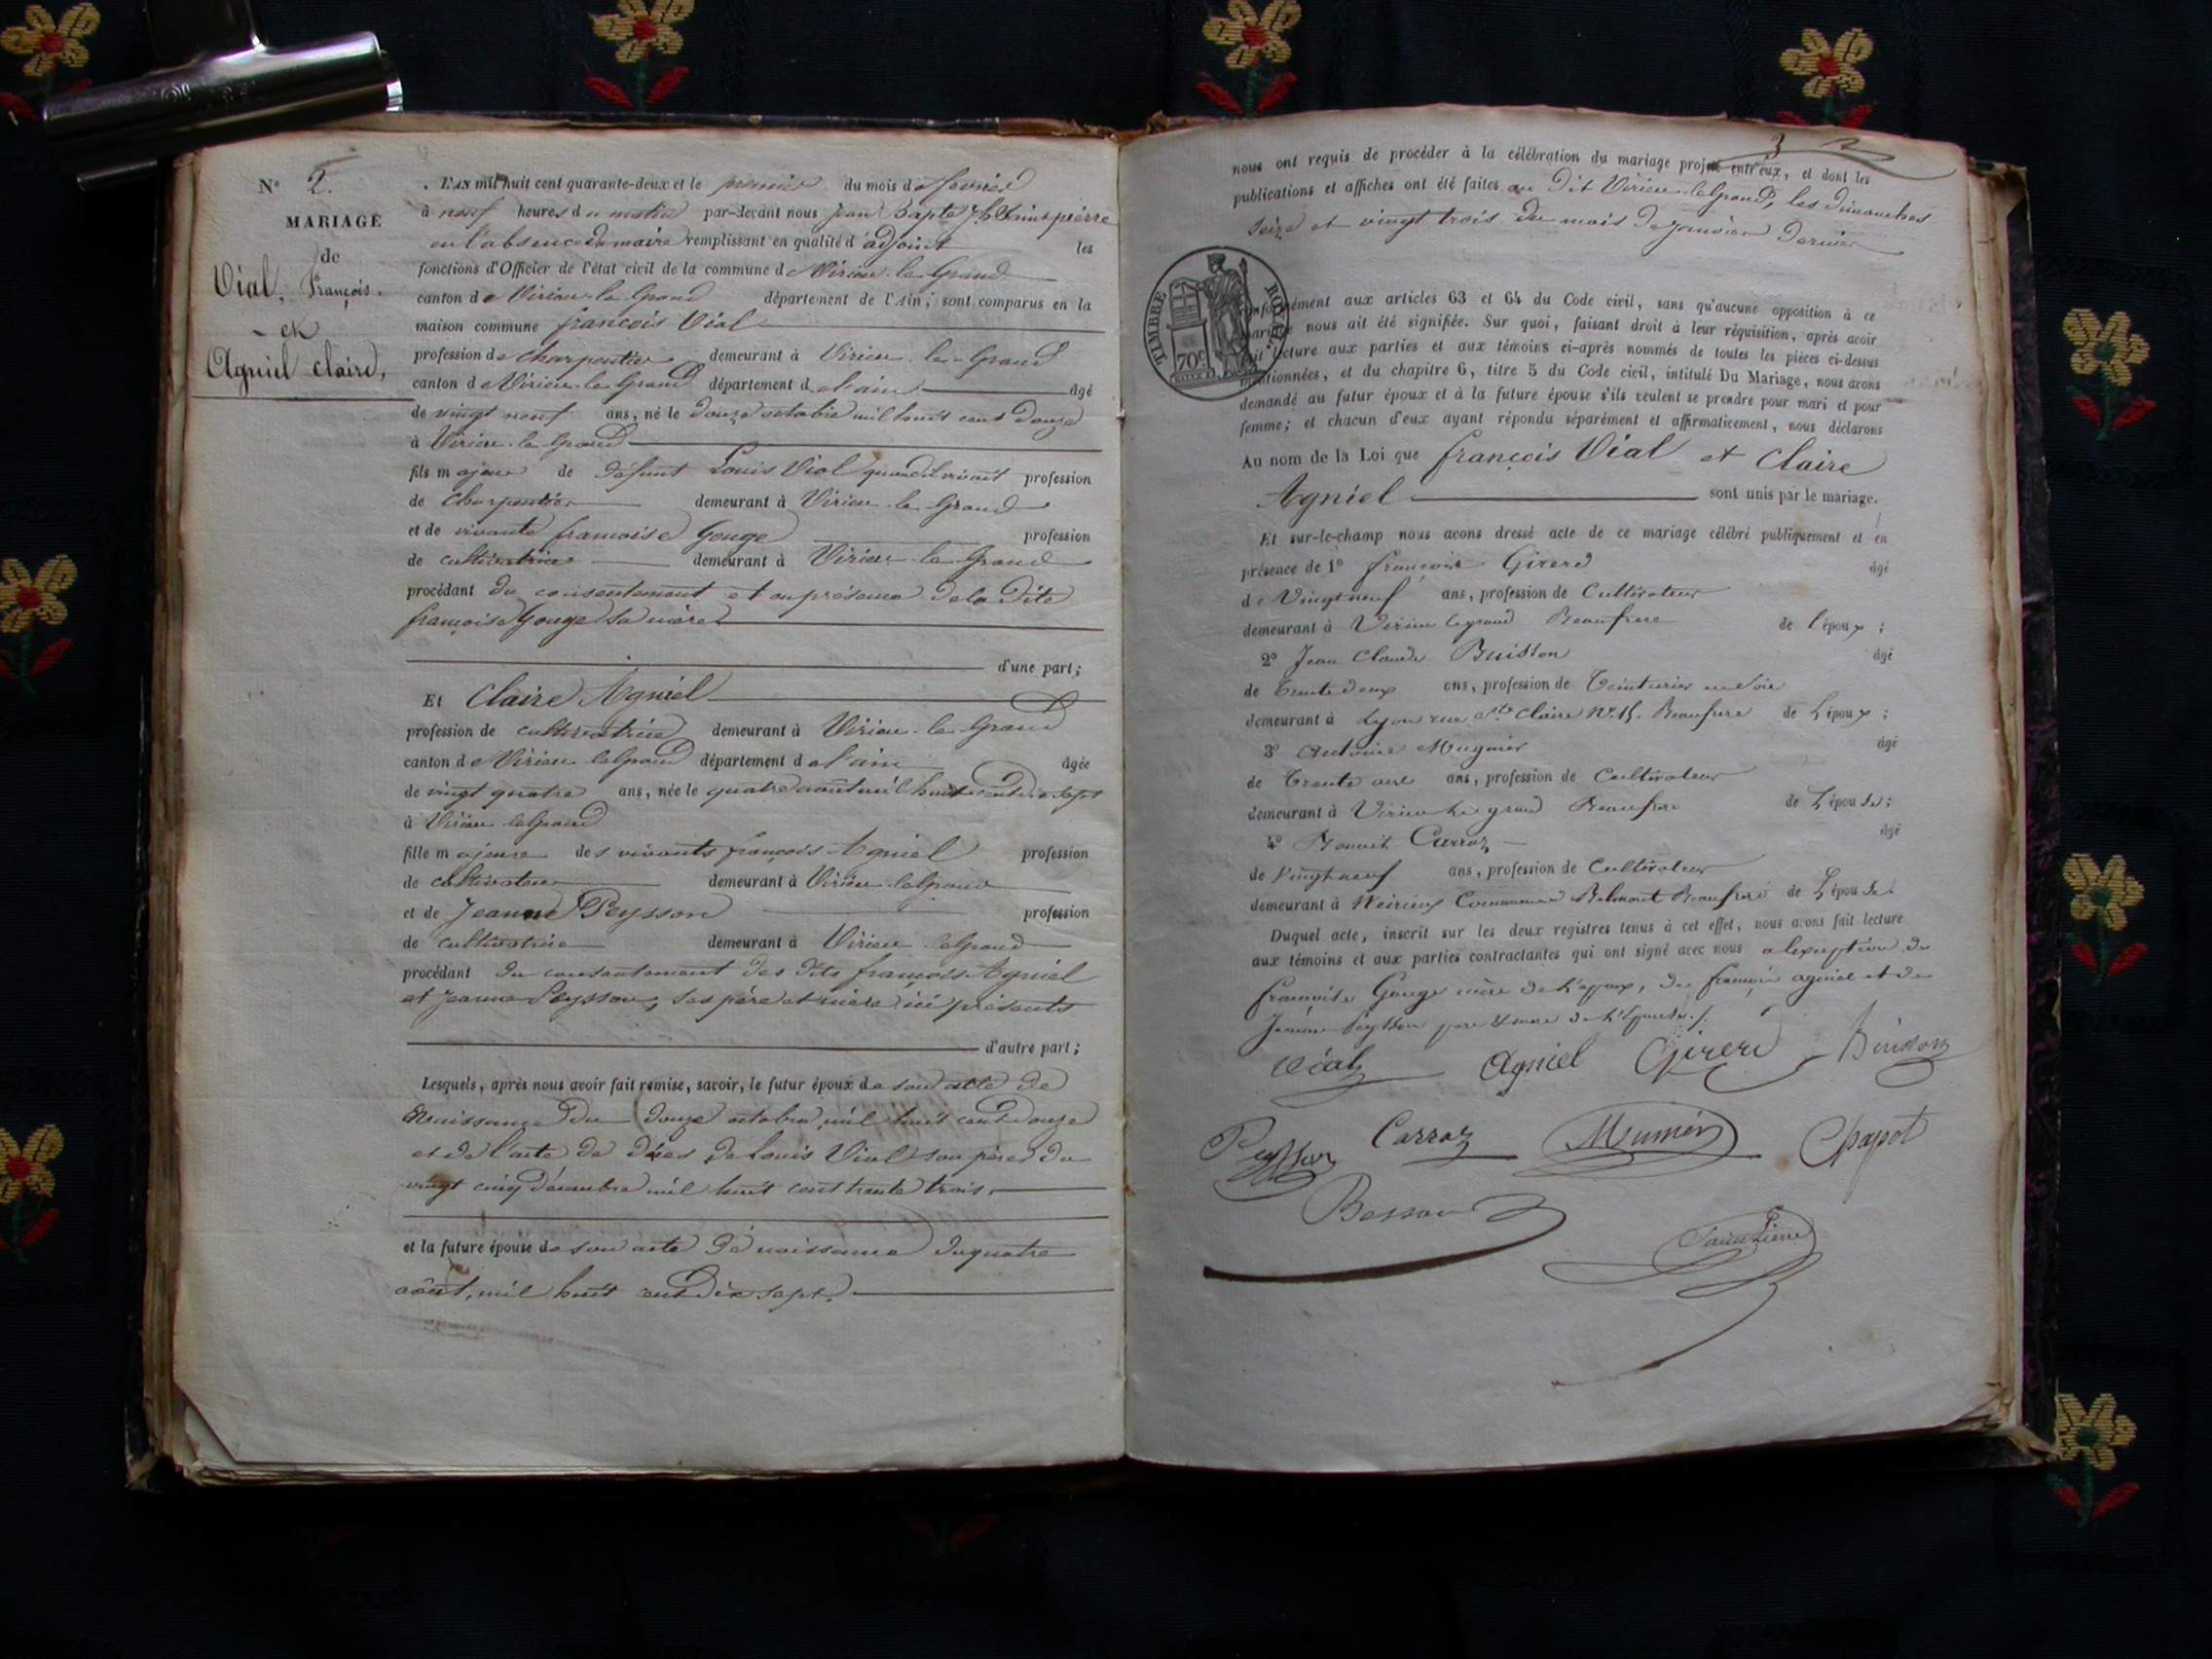 N° 2.
MARIAGE
de
Vial, François.
- et
Agniel claire,
L'AN mil huit cent quarante-deux et le premier du mois de fevrier
à neuf heures du matin par-devant nous Jean Bapte Jh Saint pierre
en l'absence du maire remplissant en qualité d'adjoint les
fonctions d'Officier de l'état civil de la commune de Virieu-le-Grand
canton de Virieu-le-Grand département de l'Ain; sont comparus en la
maison commune françois Vial
profession de charpentier demeurant à Virieu-le-Grand
canton de Virieu-le-Grand département de l'ain âgé
de vingt neuf ans, né le douze octobre mil huit cent douze
à Virieu-le-Grand
fils majeur de défunt Louis Vial quand il vivait profession
de charpentier demeurant à Virieu-le-Grand
et de vivante francoise Gouge profession
de cultivatrice demeurant à Virieu-le-Grand
procédant du consentement et en présence de la dite
françoise Gouge sa mère
d'une part;
Et Claire Agniel
profession de cultivatrice demeurant à Virieu-le-Grand
canton de Virieu leGrand département de l'ain âgée
de vingt quatre ans, née le quatre aout mil huit cent dix sept
à Virieu leGrand
fille majeure des vivants françois Agniel profession
de cultivateur demeurant à Virieu-leGrand
et de Jeanne Peysson profession
de cultivatrice demeurant à Virieu leGrand
procédant du consentement des dits françois Agniel
et Jeanne Peysson, ses père et mère ici présents
d'autre part;
Lesquels, après nous avoir fait remise, savoir, le futur époux de son acte de
naissance du douze octobre, mil huit cent douze
et de l'acte de décès de Louis Vial son père du
vingt cinq décembre mil huit cent trente trois.
et la future épouse de son acte de naissance du quatre
août, mil huit cent dix sept.
3
nous ont requis de procéder à la célébration du mariage projeté entr'eux, et dont les
publications et affiches ont été faites au dit Virieu-leGrand, les dimanches
seize et vingt trois du mois de janvier dernier
TIMBRE ROYAL
70c
conformément aux articles 63 et 64 du Code civil, sans qu'aucune opposition à ce
mariage nous ait été signifiée. Sur quoi, faisant droit à leur réquisition, après avoir
fait lecture aux parties et aux témoins ci-après nommés de toutes les pièces ci-dessus
mentionnées, et du chapitre 6, titre 5 du Code civil, intitulé Du Mariage, nous avons
demandé au futur époux et à la future épouse s'ils veulent se prendre pour mari et pour
femme; et chacun d'eux ayant répondu séparément et affirmativement, nous déclarons
Au nom de la Loi que françois Vial et Claire
Agniel sont unis par le mariage.
Et sur-le-champ nous avons dressé acte de ce mariage célébré publiquement et en
présence de 1° françois Girerd âgé
de Vingt neuf ans, profession de Cultivateur
demeurant à Virieu legrand Beaufrere de l'époux;
2° Jean Claude Buisson âgé
de trente deux ans, profession de teinturier en soie
demeurant à Lyon rue Ste Claire N° 15. Beaufrere de L'époux;
3° Antoine Mugnier âgé
de trente ans, profession de Cultivateur
demeurant à Virieu Le grand Beaufrere de L'épouse;
4° Benoit Carroz âgé
de Vingt neuf ans, profession de Cultivateur
demeurant à Commune Belmont Beaufrere de L'épouse.
Duquel acte, inscrit sur les deux registres tenus à cet effet, nous avons fait lecture
aux témoins et aux parties contractantes qui ont signé avec nous a l'exeption de
francoise Gouge mère de L'époux, de françois agniel et de
Jeanne Peysson pere et mere de L'Epouse./.
Vial Agniel Girerd Buisson
Peysson Carroz Munier Chapot
Besson SaintPierre